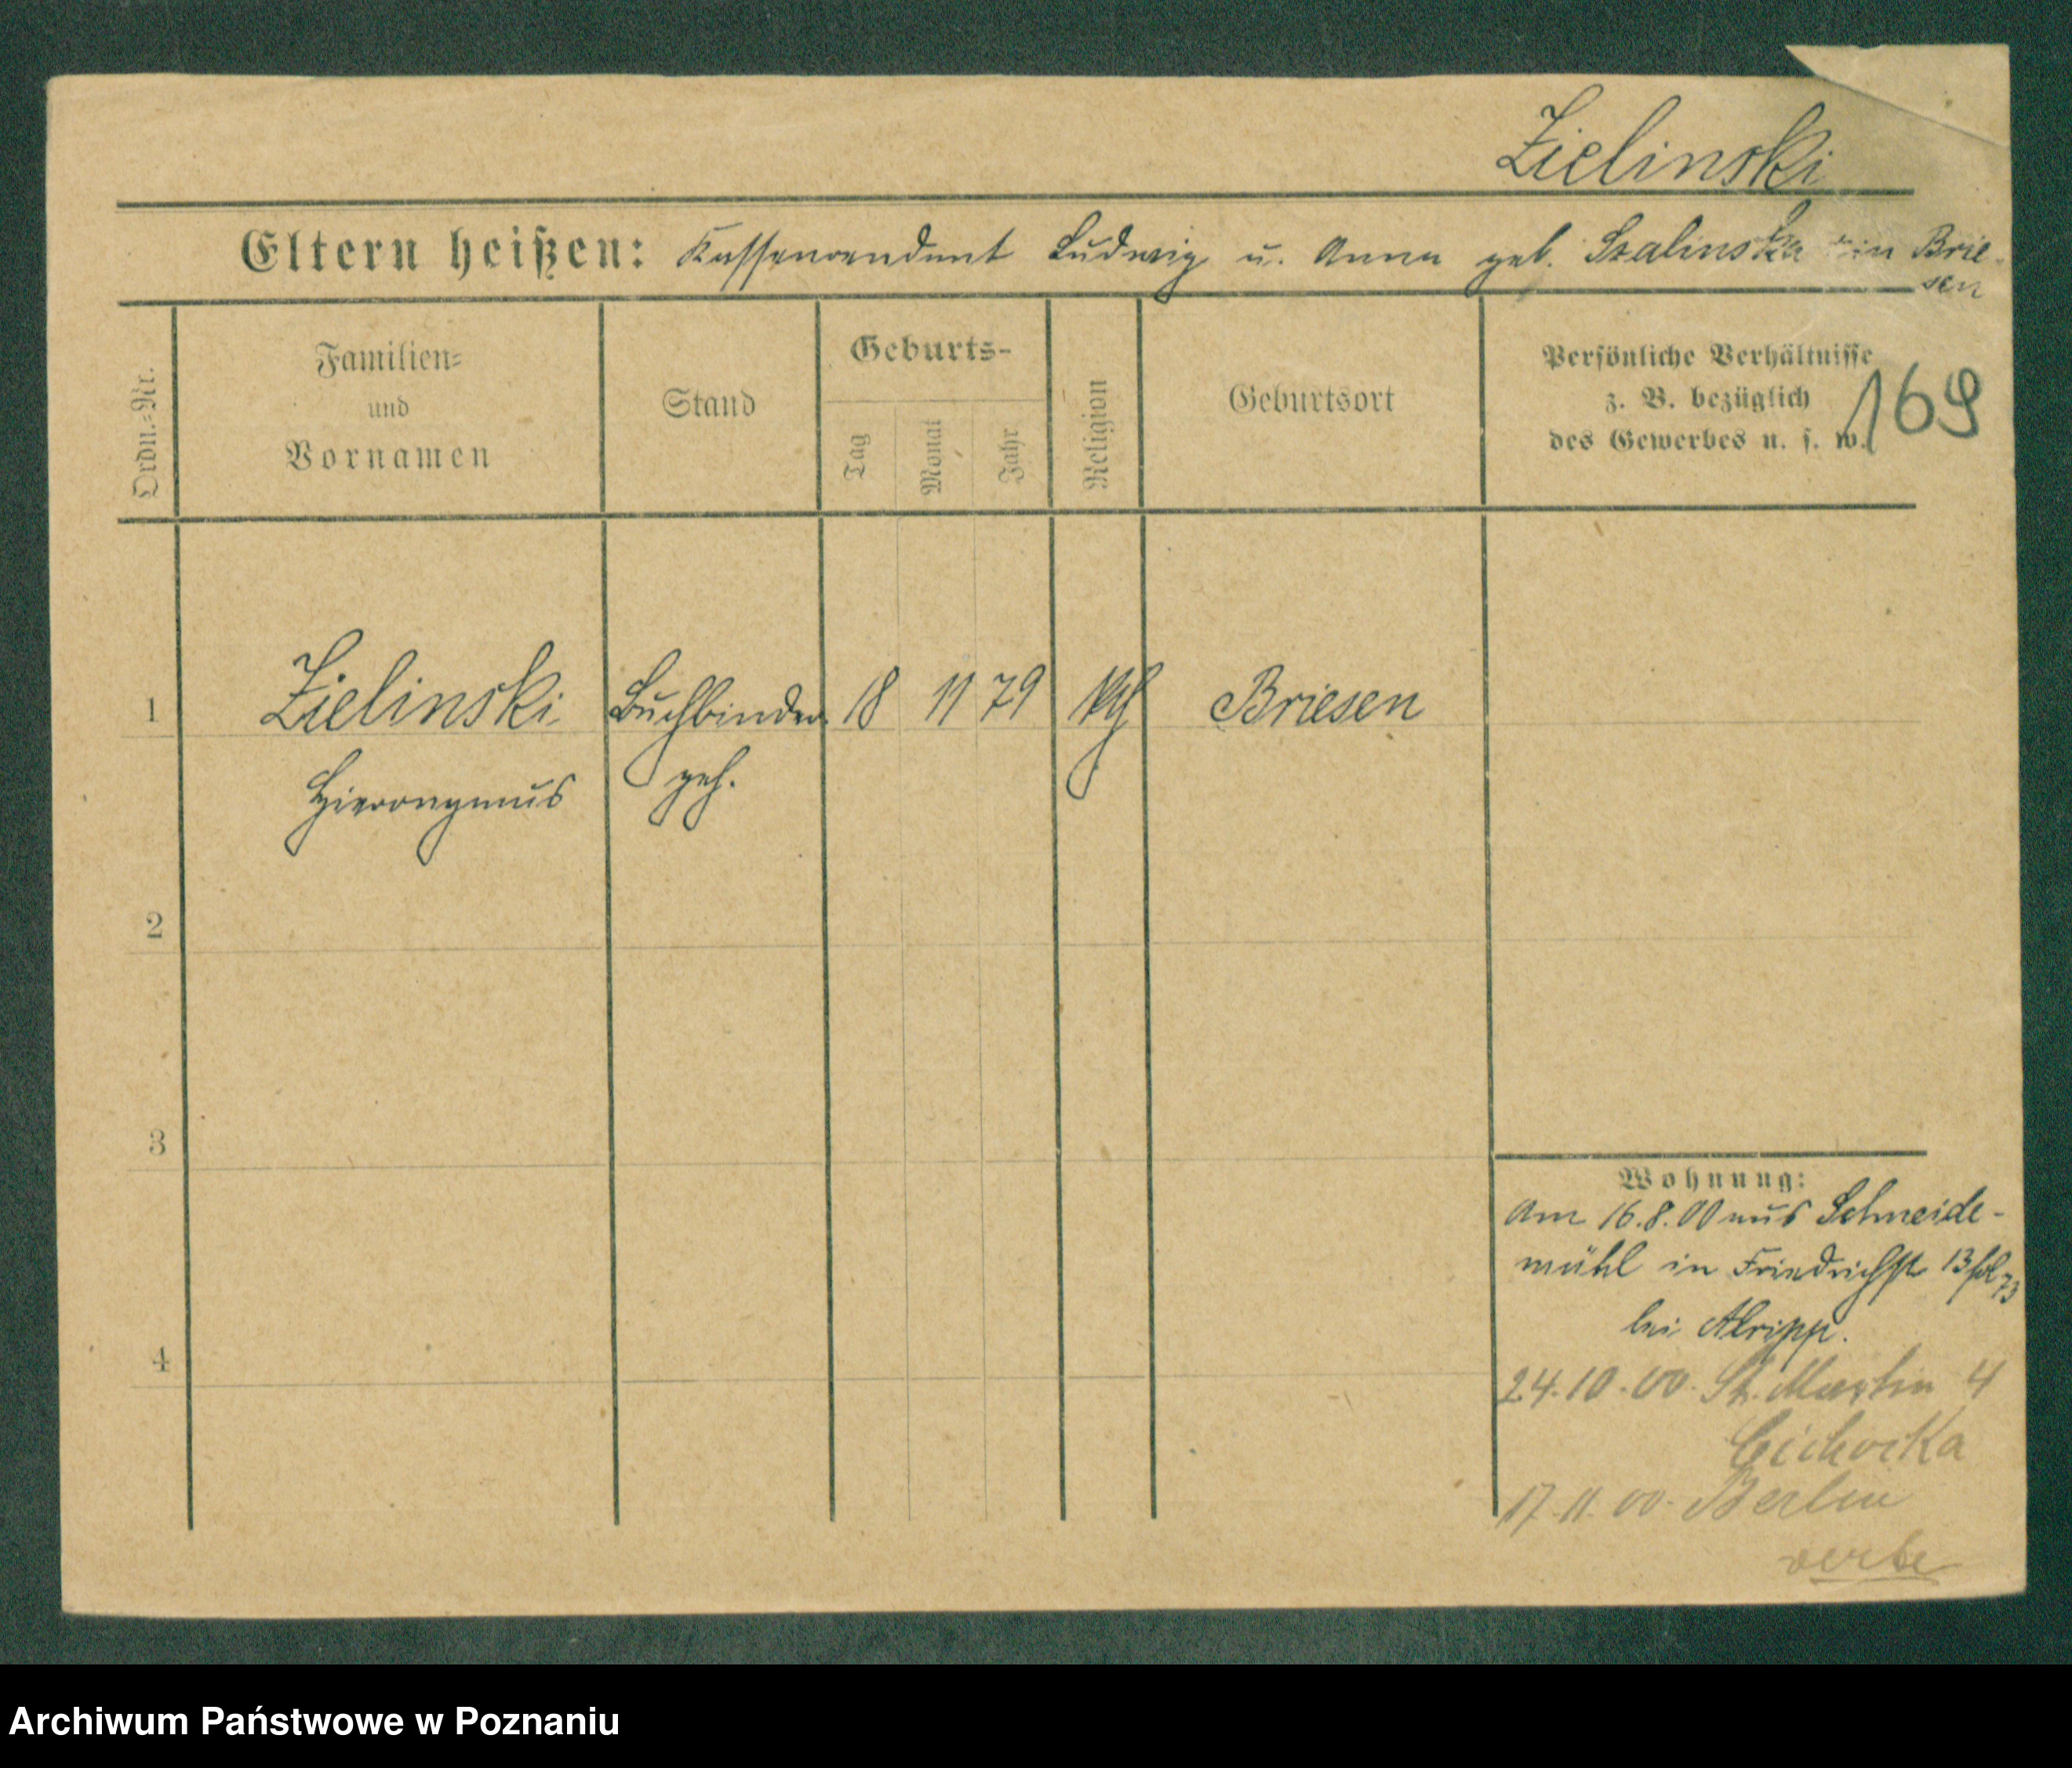 Zielinski
Eltern heißen: Kassenrendant Ludwig u. Anna geb. Szalinska in Brie-
sen
Ordn.-Nr.
Familien-
und
Vornamen
Stand
Geburts-
Tag
Monat
Jahr
Religion
Geburtsort
Persönliche Verhältnisse
z. B. bezüglich
des Gewerbes u. s. w.
169
1 Zielinski Buchbinder 18 11 79 kth Briesen
Hieronymus geh.
2
3
4
Wohnung:
Am 16.8.00 aus Schneide-
mühl in Friedrichstr 13
bei
24.10.00. St. Martin 4
Cichocka
17.11.00. Berlin
Archiwum Państwowe w Poznaniu